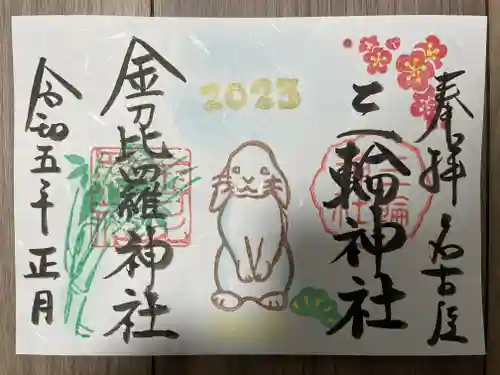 奉拝 名古屋
三輪神社
2023
金刀比羅神社
令和五年 正月